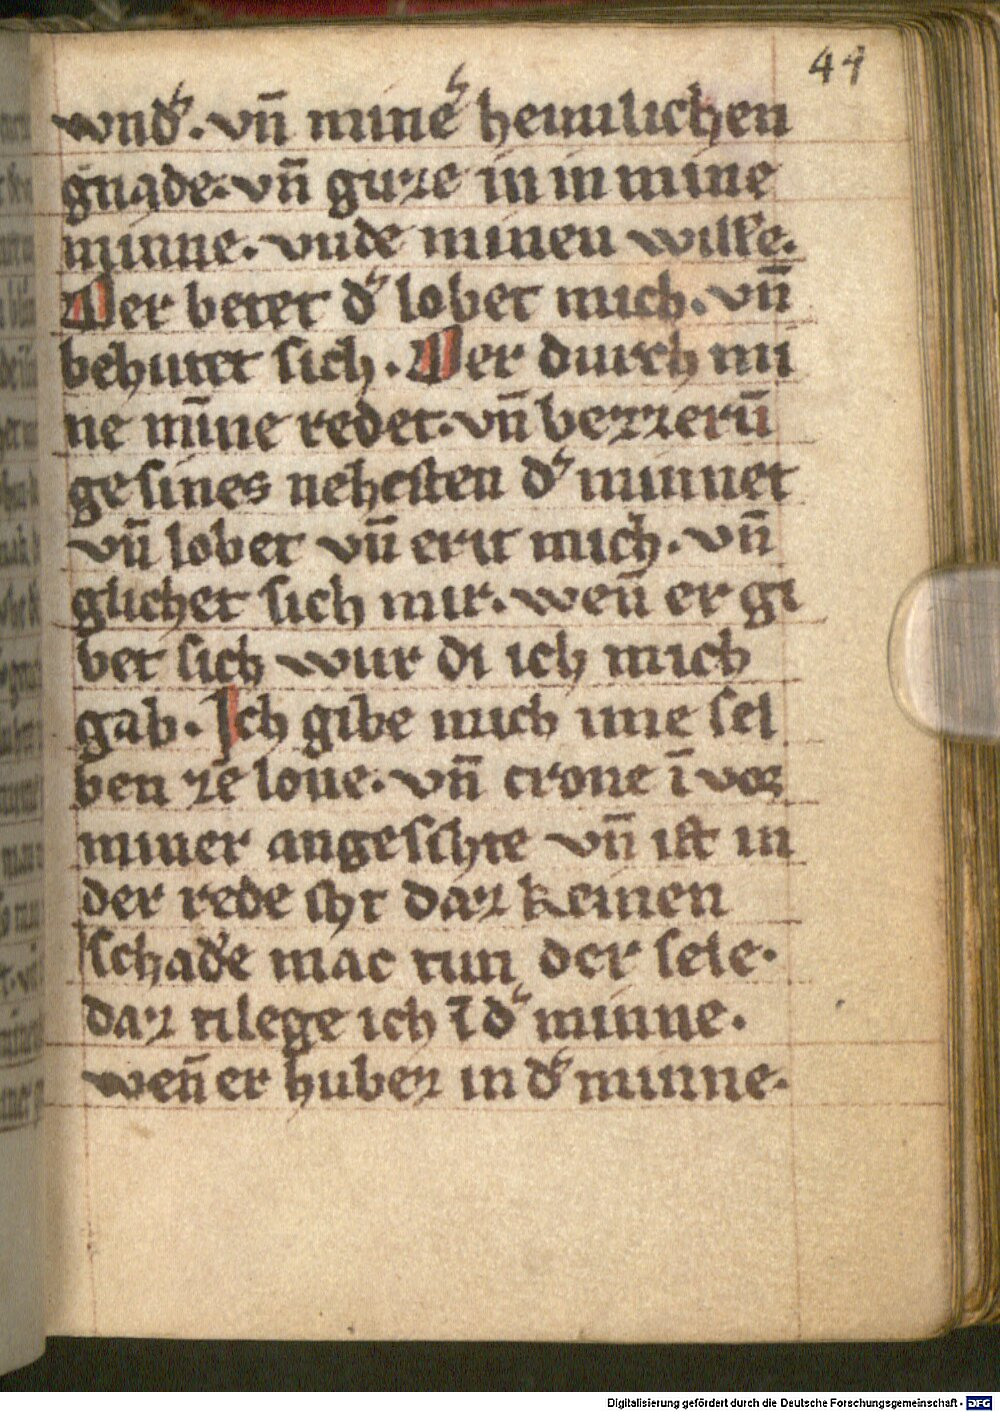 44
wndˢ. vn̄ mineˢ heimlichen
gnade. vn̄ guze in in mine
minne. vnde minen wilke.
Wer betet dˢ lobet mich. vn̄
behutet sich. Wer durch mi
ne mīne redet. vn̄ bezzerū
ge sines nehesten dˢ minnet
vn̄ lobet vn̄ erit mich. vn̄
glichet sich mir. wen̄ er gi
bet sich wur di ich mich
gab. Ich gibe mich ime sel
ben zē lone. vn̄ crone ī vor
miner angeschte vn̄ ist in
der rede iht daz keinen
schadē mac tun der sele.
daz tilege ich ī dˢ minne.
wen̄ er hubez in dˢ minne.
Digitalisierung gefördert durch die Deutsche Forschungsgemeinschaft - DFG